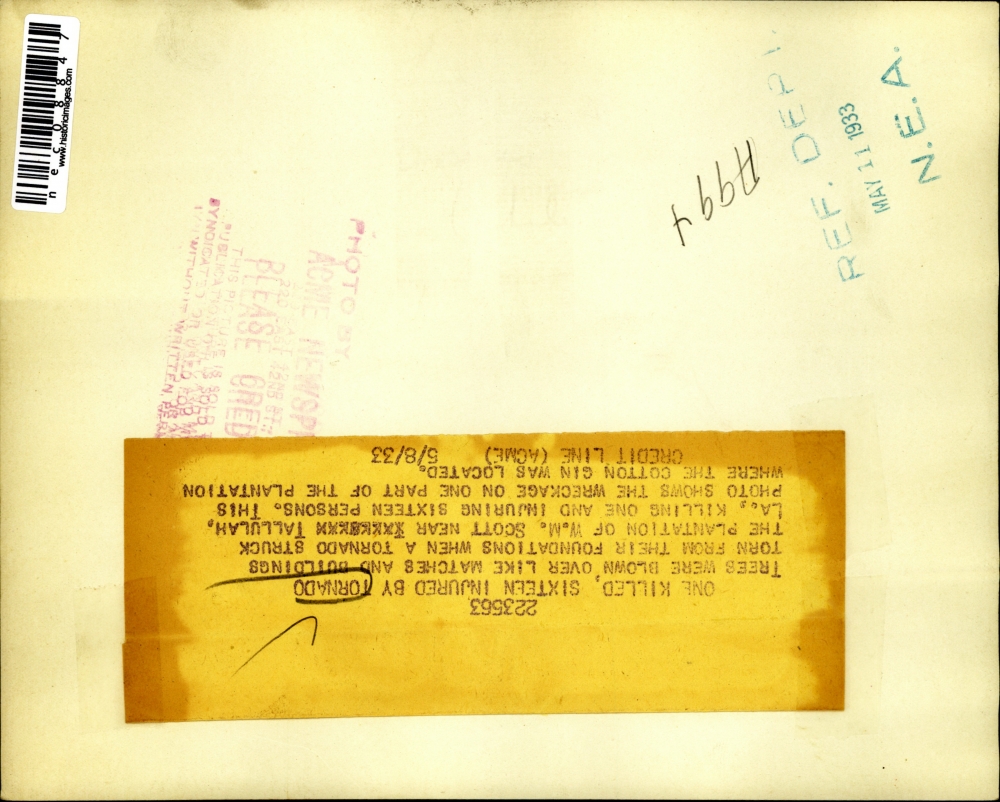 necO8847
www.historicimages.com
REF. DEP
MAY 11 1933
N.E.A.
H994
PHOTO BY
ACME NEWSP
220 EAST 42ND ST.
PLEASE CRED
THIS PICTURE IS SOLD
PUBLICATION
SYNDICATED OR USED FOR
WITHOUT WRITTEN PER
223563
ONE KILLED, SIXTEEN INJURED BY TORNADO
TREES WERE BLOWN OVER LIKE MATCHES AND BUILDINGS
TORN FROM THEIR FOUNDATIONS WHEN A TORNADO STRUCK
THE PLANTATION OF W.M. SCOTT NEAR TALLULAH,
LA., KILLING ONE AND INJURING SIXTEEN PERSONS. THIS
PHOTO SHOWS THE WRECKAGE ON ONE PART OF THE PLANTATION
WHERE THE COTTON GIN WAS LOCATED.
CREDIT LINE (ACME) 5/8/33